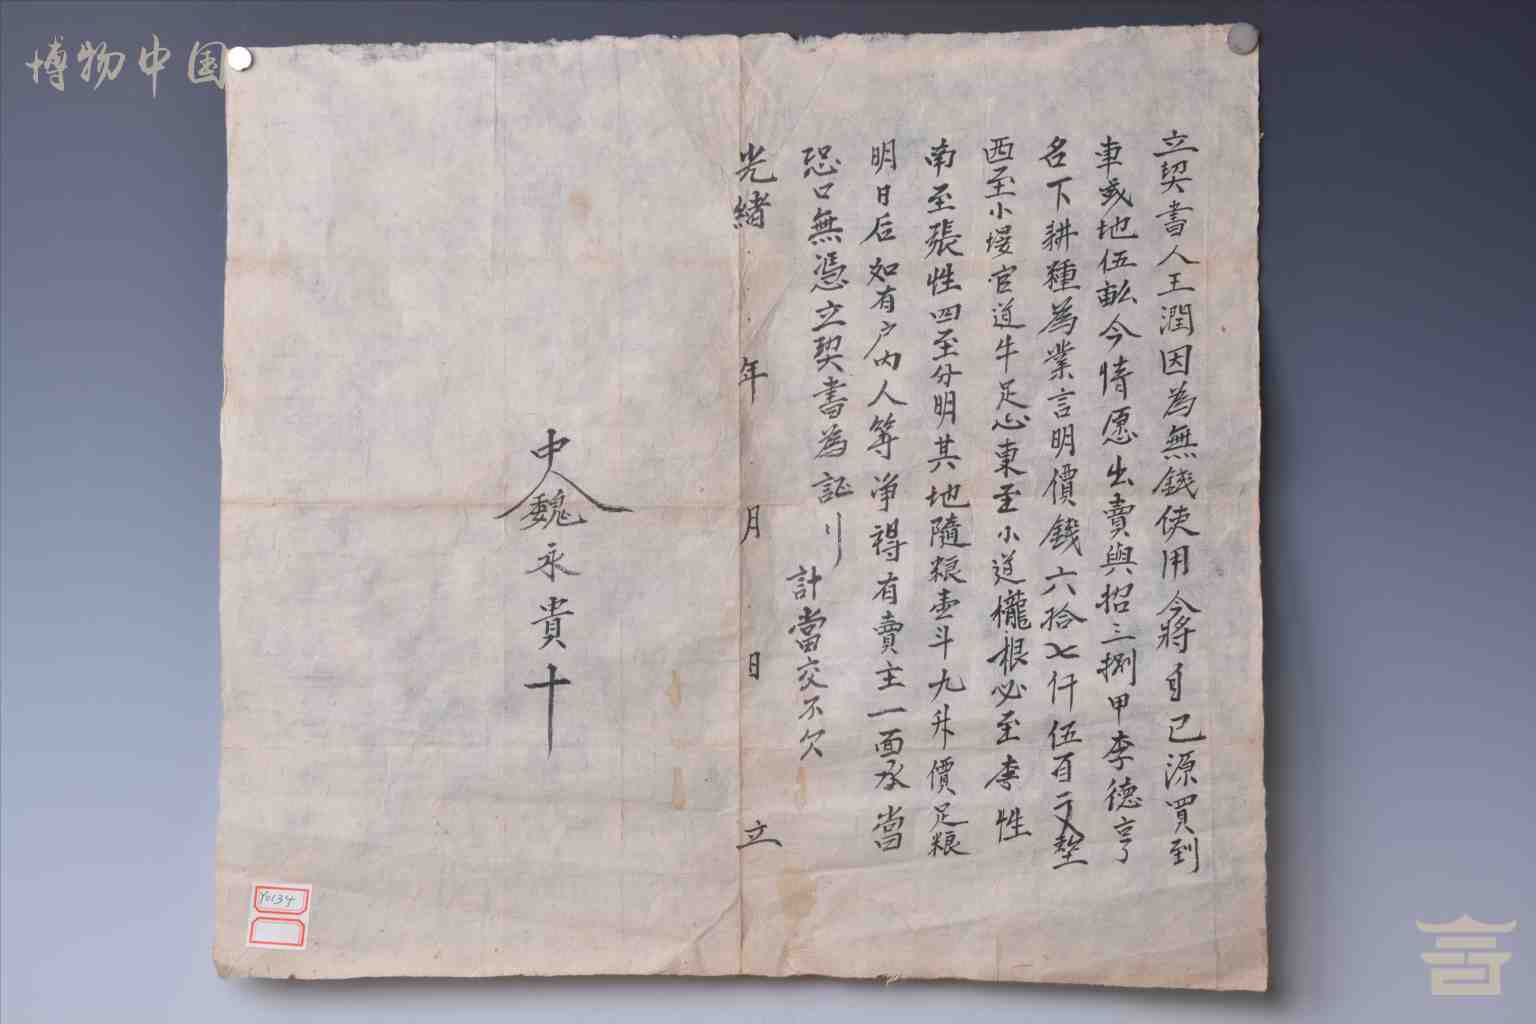 博物中国
立契書人王潤因為無錢使用今將自己源買到
車或地伍畝今情愿出賣與招三捌甲李德亨
名下耕種為業言明價錢六拾七仟伍百文整
西至小堤官道牛足心東至小道櫳根必至李性
南至張性四至分明其地隨粮壹斗九升價足粮
明日后如有户內人等净得有賣主一面承當
恐口無憑立契書為証
計當交不欠
光緒 年 月 日 立
中人魏永貴十
Y0134